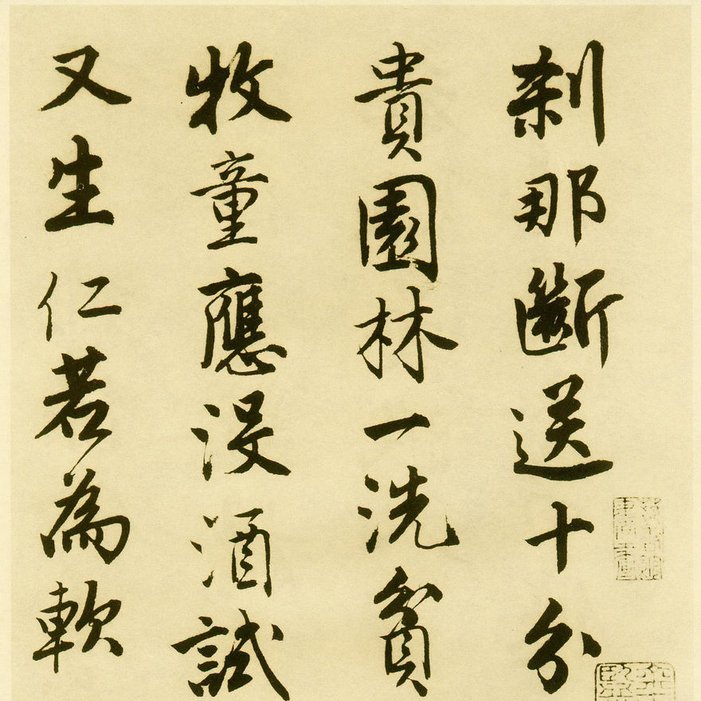 刹那斷送十分
貴園林一洗貧
牧童應沒酒試
又生仁若為軟